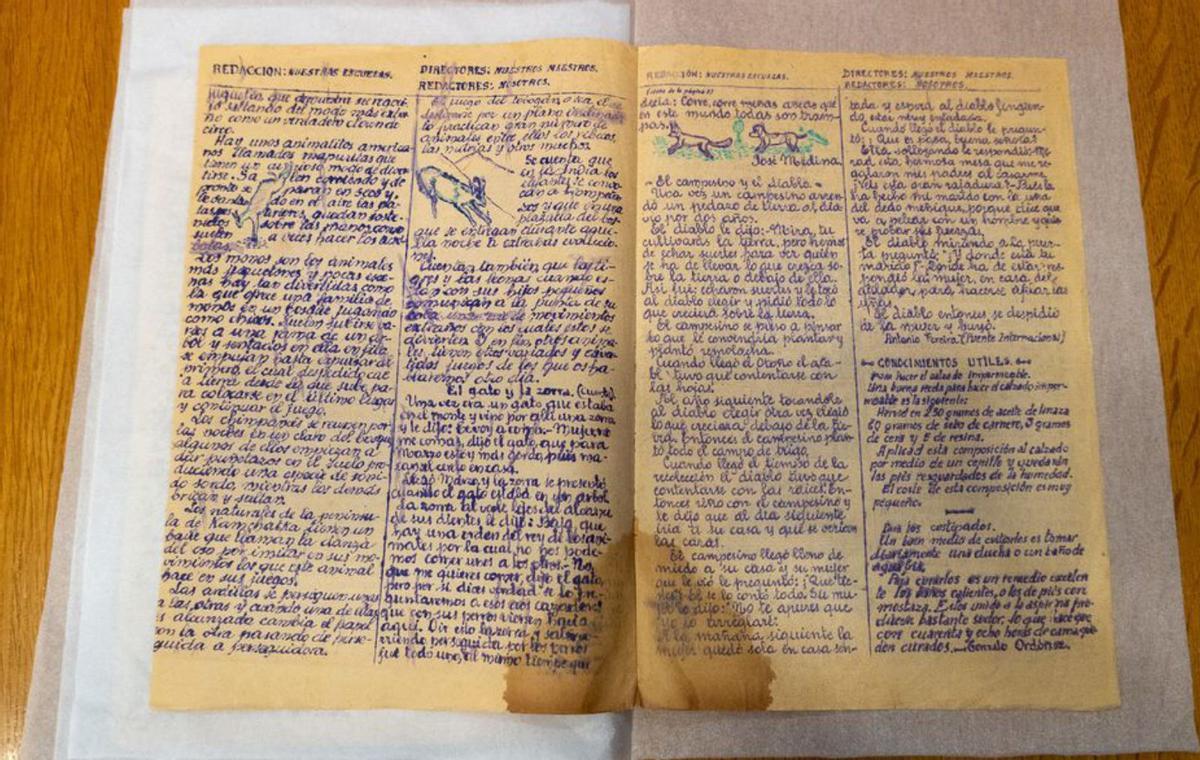 REDACCION: NUESTRAS ESCUELAS.
juguetea que demuestra su rego-
cijo saltando del modo más
no como un verdadero clown de
circo.
Hay unos animalitos america-
nos llamados mapuritas que
tienen un curioso modo de diver-
tirse. Va corriendo y de
pronto se paran en seco y,
do en el aire las pa-
quedan soste-
nidos sobre las manos como
suelen a veces hacer los
Los monos son los animales
más juguetones y pocas esce-
nas hay tan divertidas como
la que ofrece una familia de
monos en un bosque jugando
como chicos. Suelen subirse va-
rios a una rama de un ár-
bol y sentados en ella en fila,
se empujan hasta
primero, el cual despedido cae
a tierra desde la que sube pa-
ra colocarse en el último lugar
y continuar el juego.
Los chimpancés se reunen por
las noches en un claro del bosque
algunos de ellos empiezan a
dar puñetazos en el suelo pro-
duciendo una especie de soni-
do sordo, mientras los demás
brincan y saltan.
Los naturales de la penínsu-
la de Kamchatka tienen un
baile que llaman la danza
del oso por imitar en sus mo-
vimientos los que este animal
hace en sus juegos.
Las ardillas se persiguen unas
a las otras y cuando una de ellas
es alcanzada cambia el papel
con la otra pasando de perse-
guida a perseguidora.
DIRECTORES: NUESTROS MAESTROS.
REDACTORES: NOSOTROS.
El juego del tobogán o sea el
deslizarse por un plano inclinado
lo practican gran número de
animales entre ellos los rebecos,
las nutrias y otros muchos.
Se cuenta que
en la India los
elefantes se
can a trompeta-
zos y que en una
plazuela del bos-
que se entregan durante aque-
lla noche a extrañas evolucio-
nes.
Cuentan también que los ti-
gres y las leonas cuando es-
tán con sus hijos pequeños
comunican a la punta de su
cola una serie de movimientos
extraños con los cuales estos se
divierten. Y en fin, otros anima-
les, tienen otros variados y
juegos de los que os ha-
blaremos otro día.
El gato y la zorra. (Cuento)
Una vez era un gato que estaba
en el monte y vino por allí una zorra
y le dijo: te voy a comer.- No me
me comas, dijo el gato, que para
Marzo estoy más gordo, pues ma-
tan el cerdo en casa.
Llegó Marzo, y la zorra se presentó
cuando el gato estaba en un árbol.
La zorra tal verle lejos del alcance
de sus dientes le dijo: Baja, que
hay una orden del rey de los ani-
males por la cual, no nos pode-
mos comer unos a los otros.- No,
que me quieres comer, dijo el gato,
pero por si dices verdad se lo pre-
guntaremos a esos dos cazadores
que con sus perros vienen hacia
aquí. Oir esto la zorra y salir co-
rriendo perseguida por los perros
fue todo uno, al mismo tiempo que
REDACCIÓN: NUESTRAS ESCUELAS.
(viene de la página 2)
decía: Corre, corre menos creas que
en este mundo todas son tram-
pas.
José Medina.
- El campesino y el diablo. -
Una vez un campesino arren-
dó un pedazo de tierra al dia-
vlo por dos años.
El diablo le dijo:-Mira, tu
cultivarás la tierra, pero hemos
de echar suertes para ver quién
se ha de llevar lo que crezca so-
bre la tierra o debajo de ella.
Así fué: echaron suertes y le tocó
al diablo elegir y pidió todo lo
que creciera sobre la tierra.
El campesino se puso a pensar
lo que le convendría plantar y
plantó remolacha.
Cuando llegó el Otoño el dia-
blo tuvo que contentarse con
las hojas.
Al año siguiente tocándole
al diablo elegir otra vez eligió
lo que creciera debajo de la tie-
rra. Entonces el campesino plan-
tó todo el campo de trigo.
Cuando llegó el tiempo de la
recolección el diablo tuvo que
contentarse con las raíces. En-
tonces riñó con el campesino y
le dijo que al día siguiente
iría a su casa y que se verían
las caras.
El campesino llegó lleno de
miedo a su casa y su mujer
que le vió le preguntó: ¿Que tie-
nes? le contó todo. Su mu-
jer le dijo: No te apures que
yo lo arreglaré.
A la mañana siguiente la
mujer quedó sola en casa sen-
DIRECTORES: NUESTROS MAESTROS.
REDACTORES: NOSOTROS.
tada y esperó al diablo fingien-
do estar muy enfadada.
Cuando llegó el diablo le pregun-
tó: ¿Que os pasa, buena señora?
Ella sollozando le respondió: Mi-
rad esta hermosa mesa que me re-
galaron mis padres al casarme.
¿Veis esta gran rajadura? Pues la
ha hecho mi marido con la uña
del dedo meñique, porque dice que
va a pelear con un hombre y quie-
re probar sus fuerzas.
El diablo mirando a la puer-
ta preguntó: ¿Y donde está tu
marido?- ¿Donde ha de estar?, res-
pondió la mujer, en casa del
afilador, para hacerse afilar las
uñas.
El diablo entonces se despidió
de la mujer y huyó.
Antonio Pereira.(Puente Internacional)
CONOCIMIENTOS UTILES.
Para hacer el calzado impermeable.
Una buena receta para hacer el calzado imper-
meable es la siguiente:
Hervid en 250 gramos de aceite de linaza
60 gramos de sebo de carnero, 3 gramos
de cera y 5 de resina.
Aplicad esta composición al calzado
por medio de un cepillo y quedarán
los piés resguardados de la humedad.
El coste de esta composición es muy
pequeño.
Para los costipados.
Un buen medio de evitarlos es tomar
diariamente una ducha o un baño de
agua fría.
Para curarlos es un remedio excelen-
te los baños calientes, o los de piés con
mostaza. Estos unido a la aspirina pro-
ducen bastante sudor, lo que hace que
con cuarenta y ocho horas de cama que-
den curados.
Ordóñez.